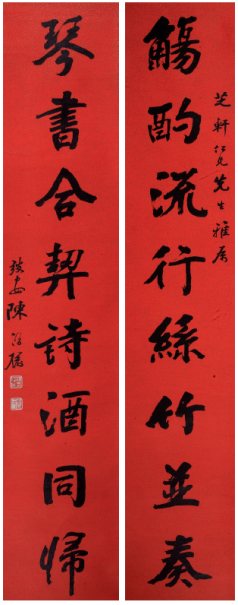 芝軒仁兄先生雅屬
觴酌流行絲竹並奏
琴書合契詩酒同歸
陳